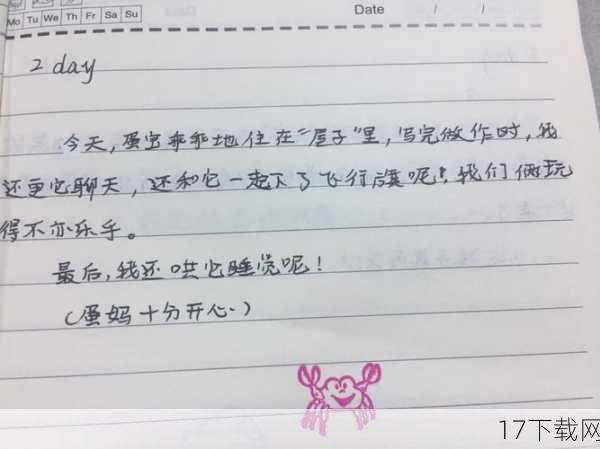 Mo Tu We Th Fr Sa Su
Date / /
2 day
今天,蛋宝乖乖地住在"屋子"里,写完做作时,我
还更它聊天,还和它一起下了飞行旗呢!我们俩玩
得不亦乐乎。
最后,我还哄它睡觉呢!
(蛋妈十分开心.)
17下载网